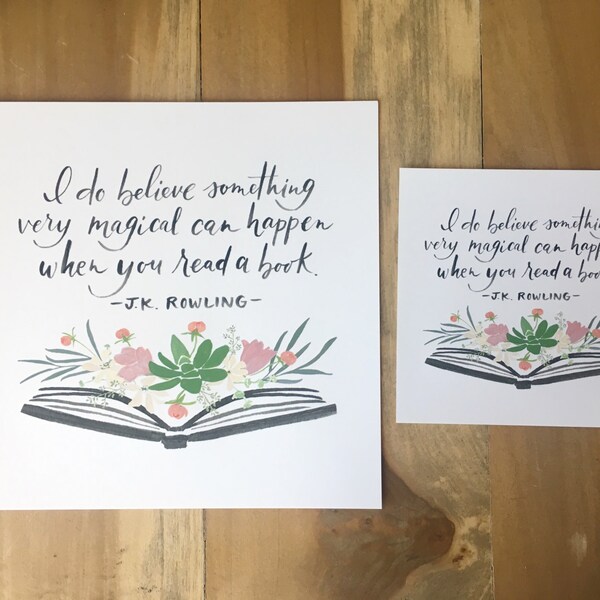 I do believe something
very magical can happen
when you read a book.
-J.K. ROWLING-
I do believe somethin
very magical can happ
when you read a boo
-J.K. ROWLING-